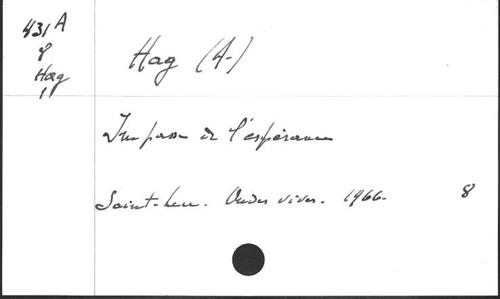 431 A
8
Hag
1
Hag (A.)
Impasse de l'espérance
Saint-Leu. Ondes vives. 1966. 8